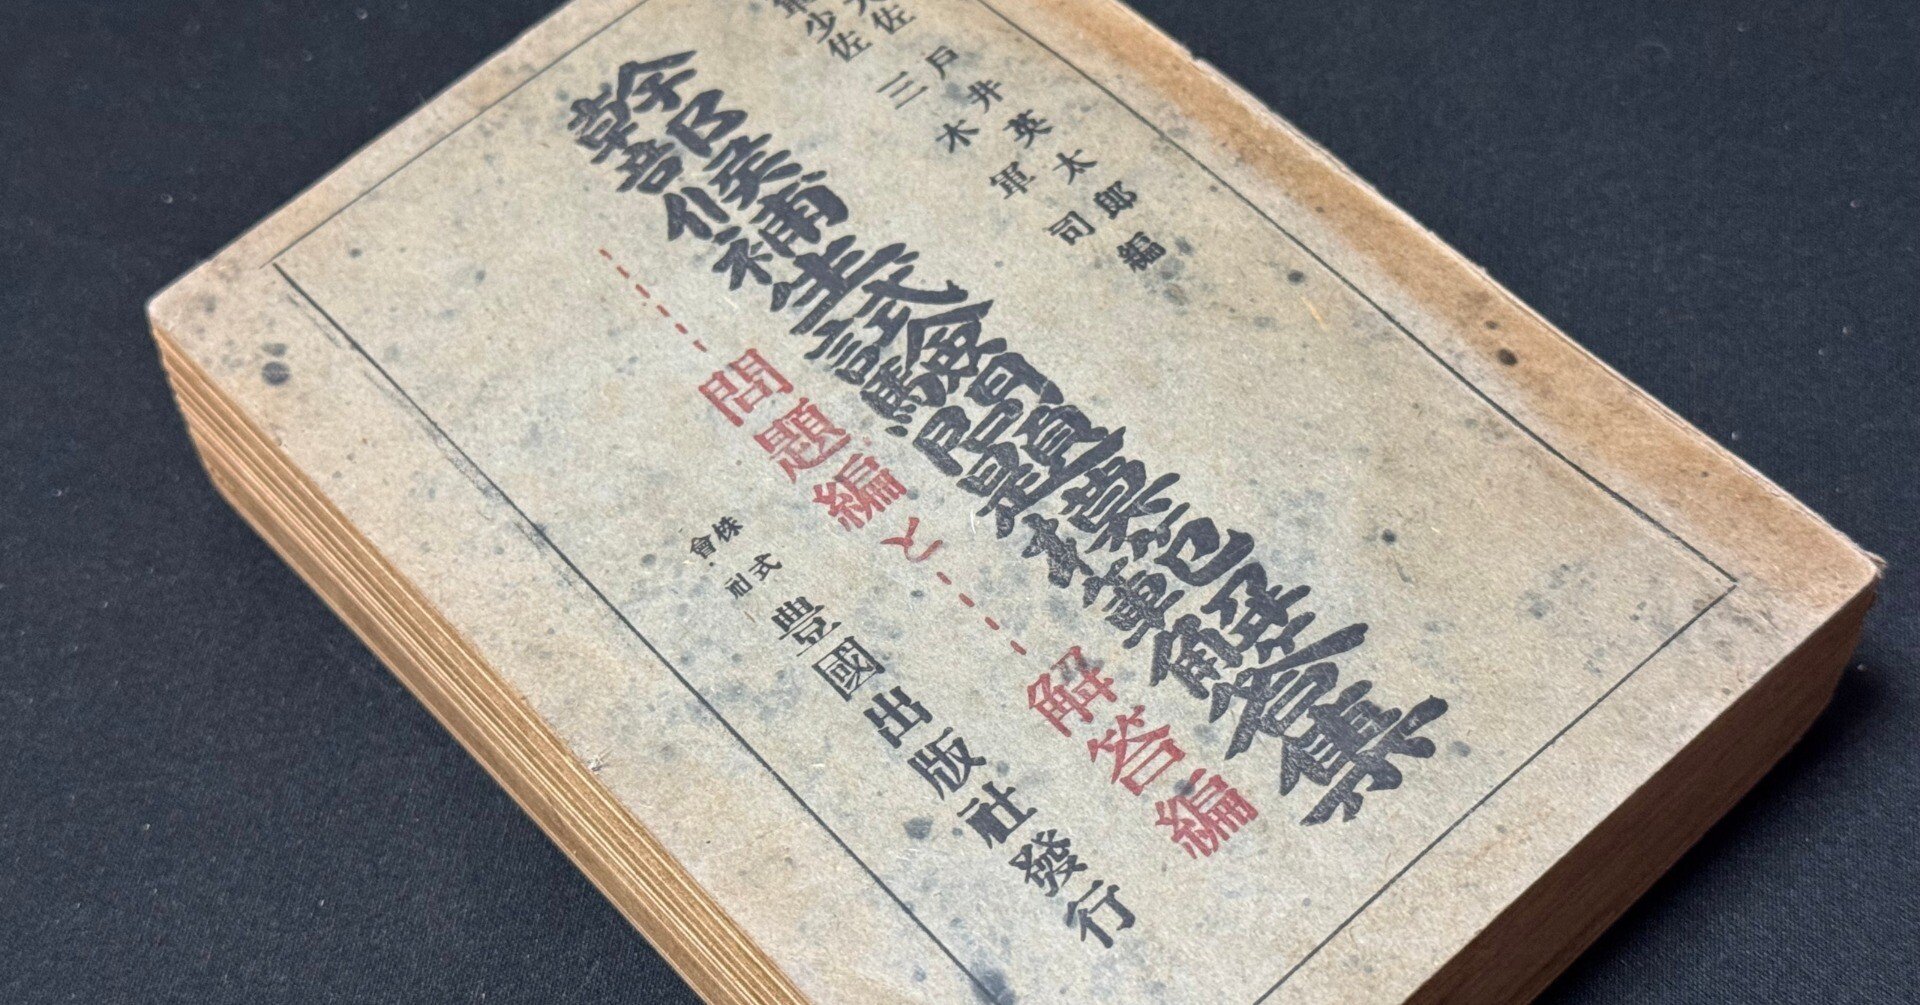 大佐 戸井英太郎
軍少佐 三木軍司
編
幹部候補生試驗問題模範解答集
-----問題編と-----解答編
株式會社 豊國出版社發行